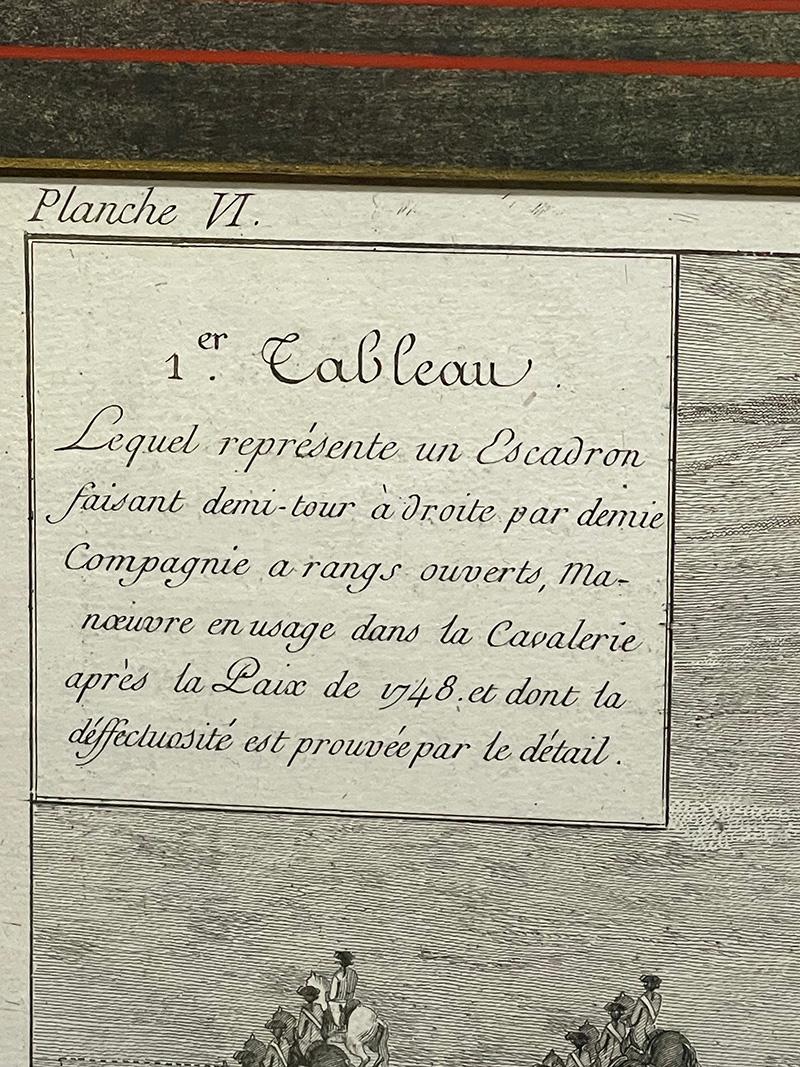 Planche VI.
1.er Tableau
Lequel représente un Escadron
faisant demi-tour à droite par demie
Compagnie a rangs ouverts, Ma-
nœuvre en usage dans la Cavalerie
après la Paix de 1748. et dont la
déffectuosité est prouvée par le détail.